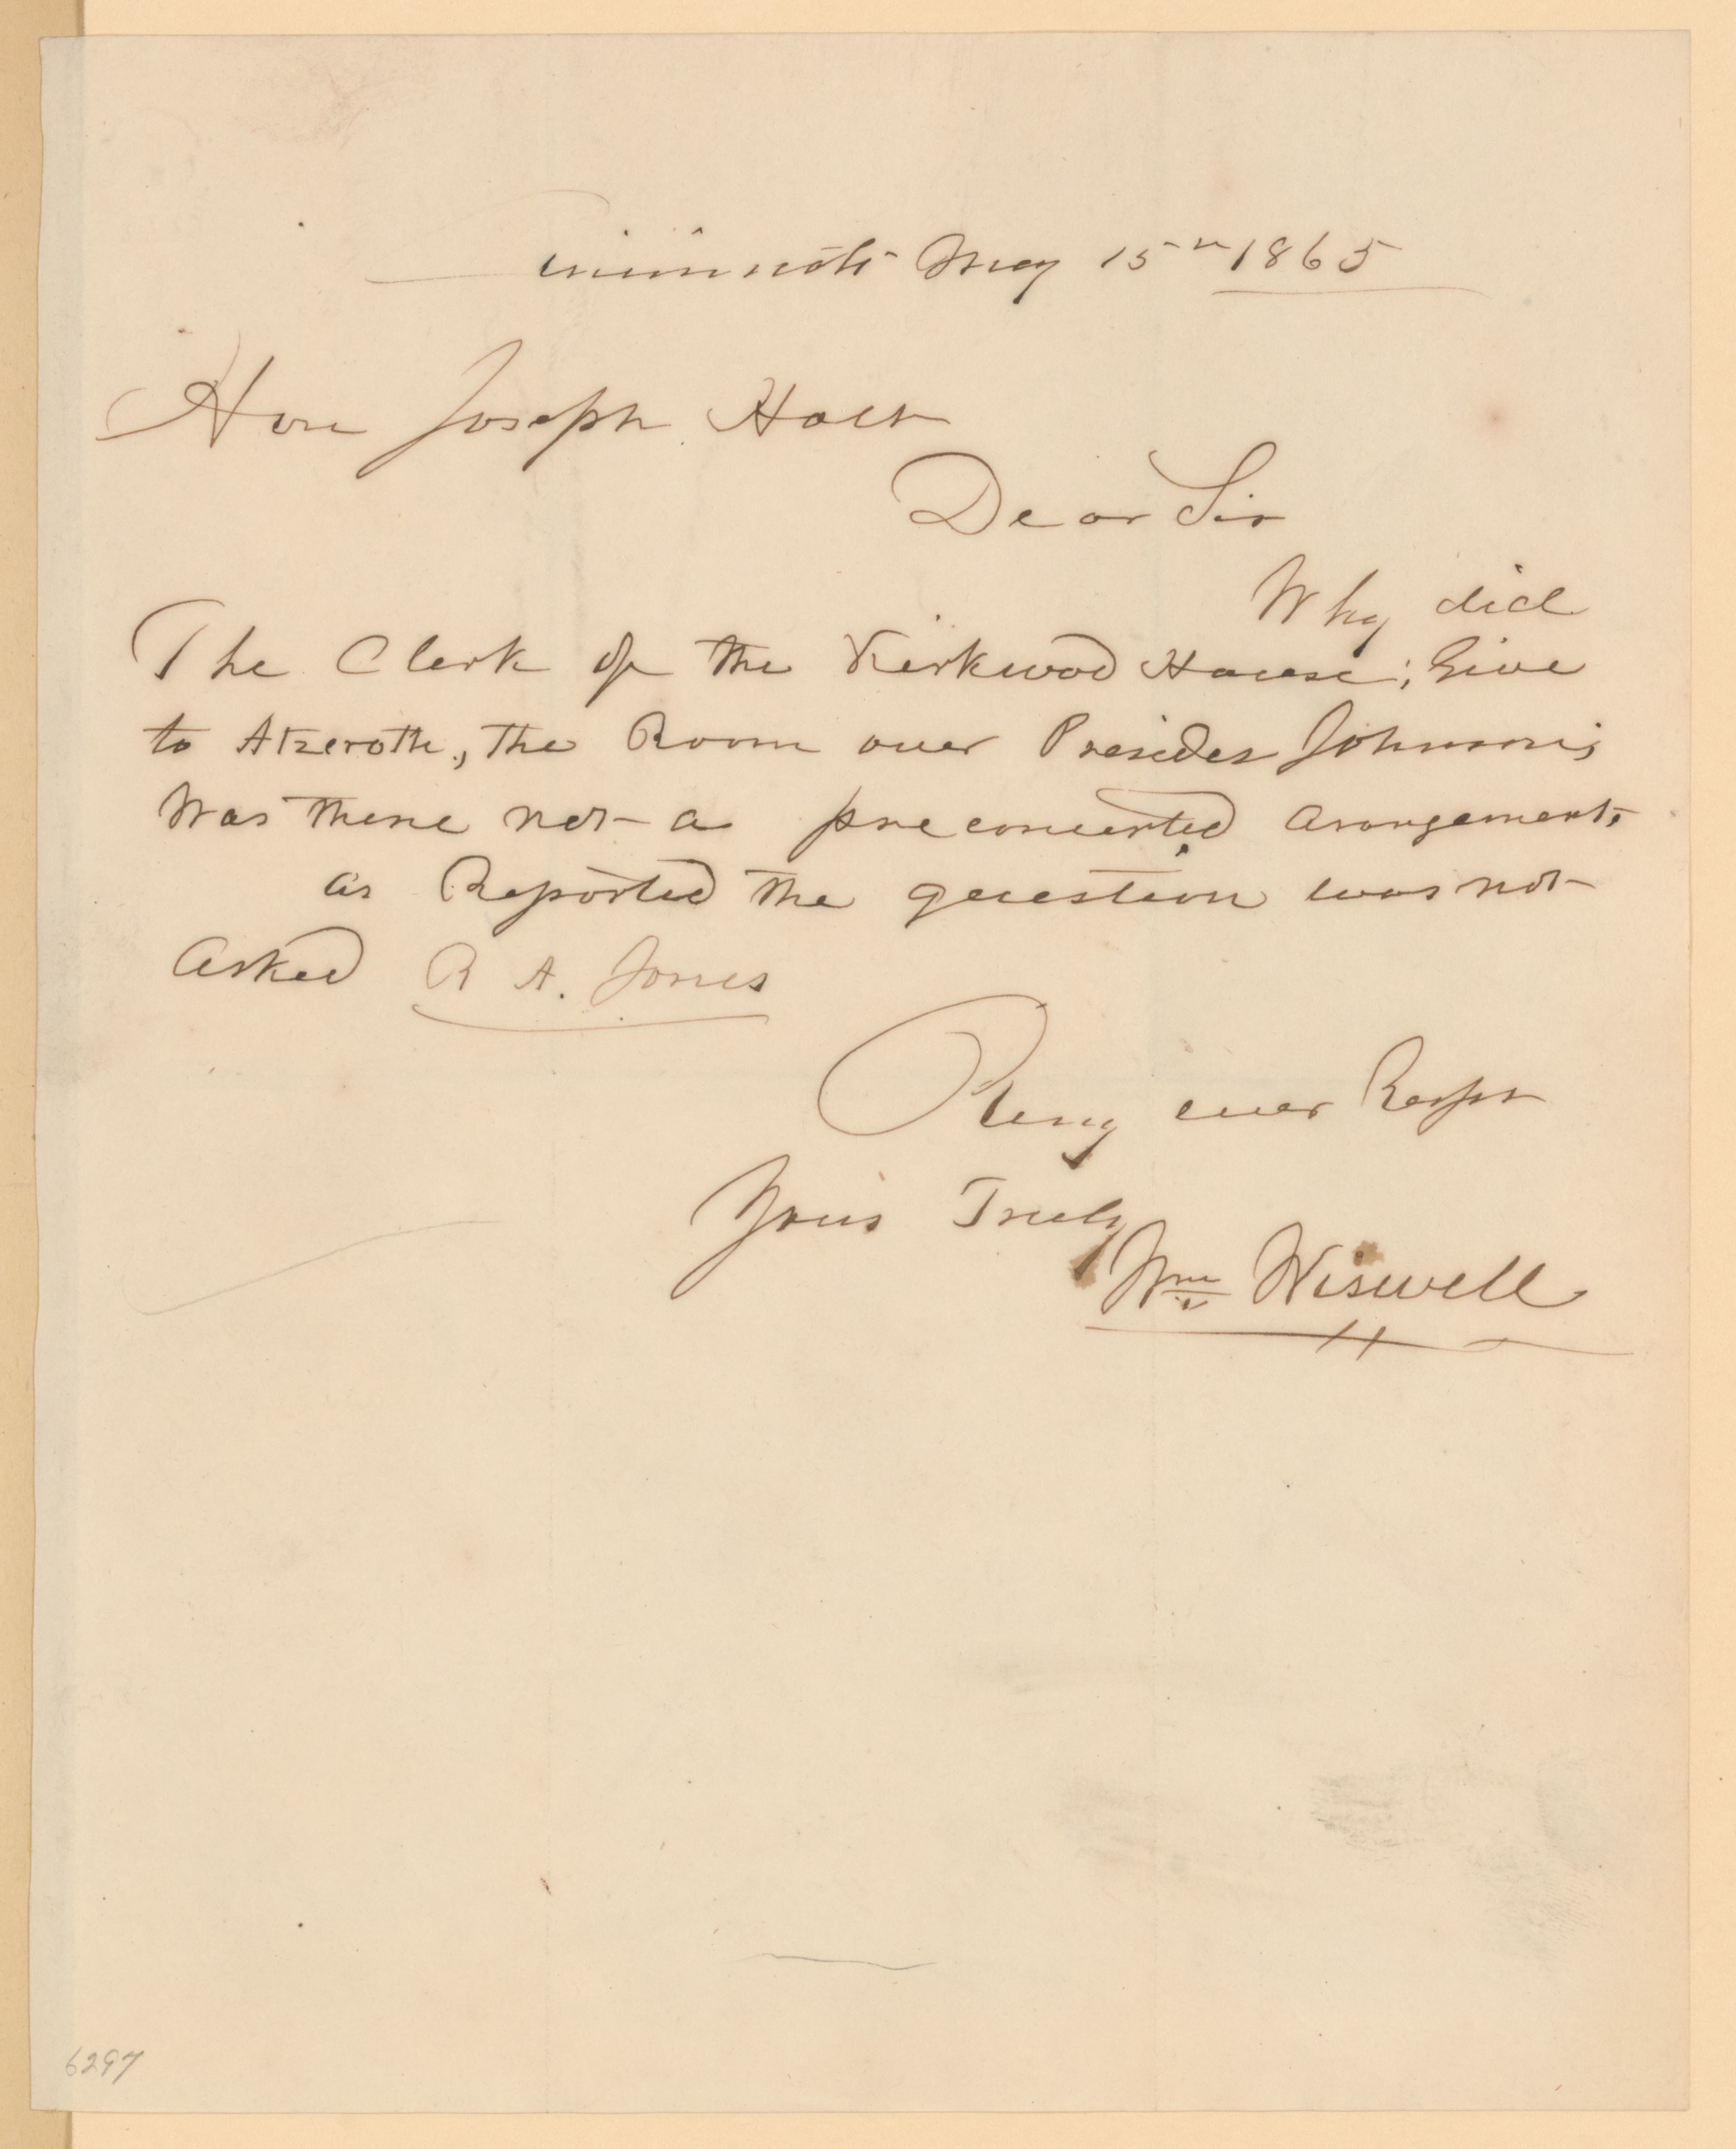 Cincinnati May 15th 1865
Hon Joseph Holt
Dear Sir
Why did
The Clerk of the Kirkwood House; Give
to Atzeroth, the Room over Presiden Johnson's
Was there not a preconcerted Arangement,
as Reported the question was not
Asked R A. Jones
Very ever Respt
Yours Truly
Wm Wiswell
6297